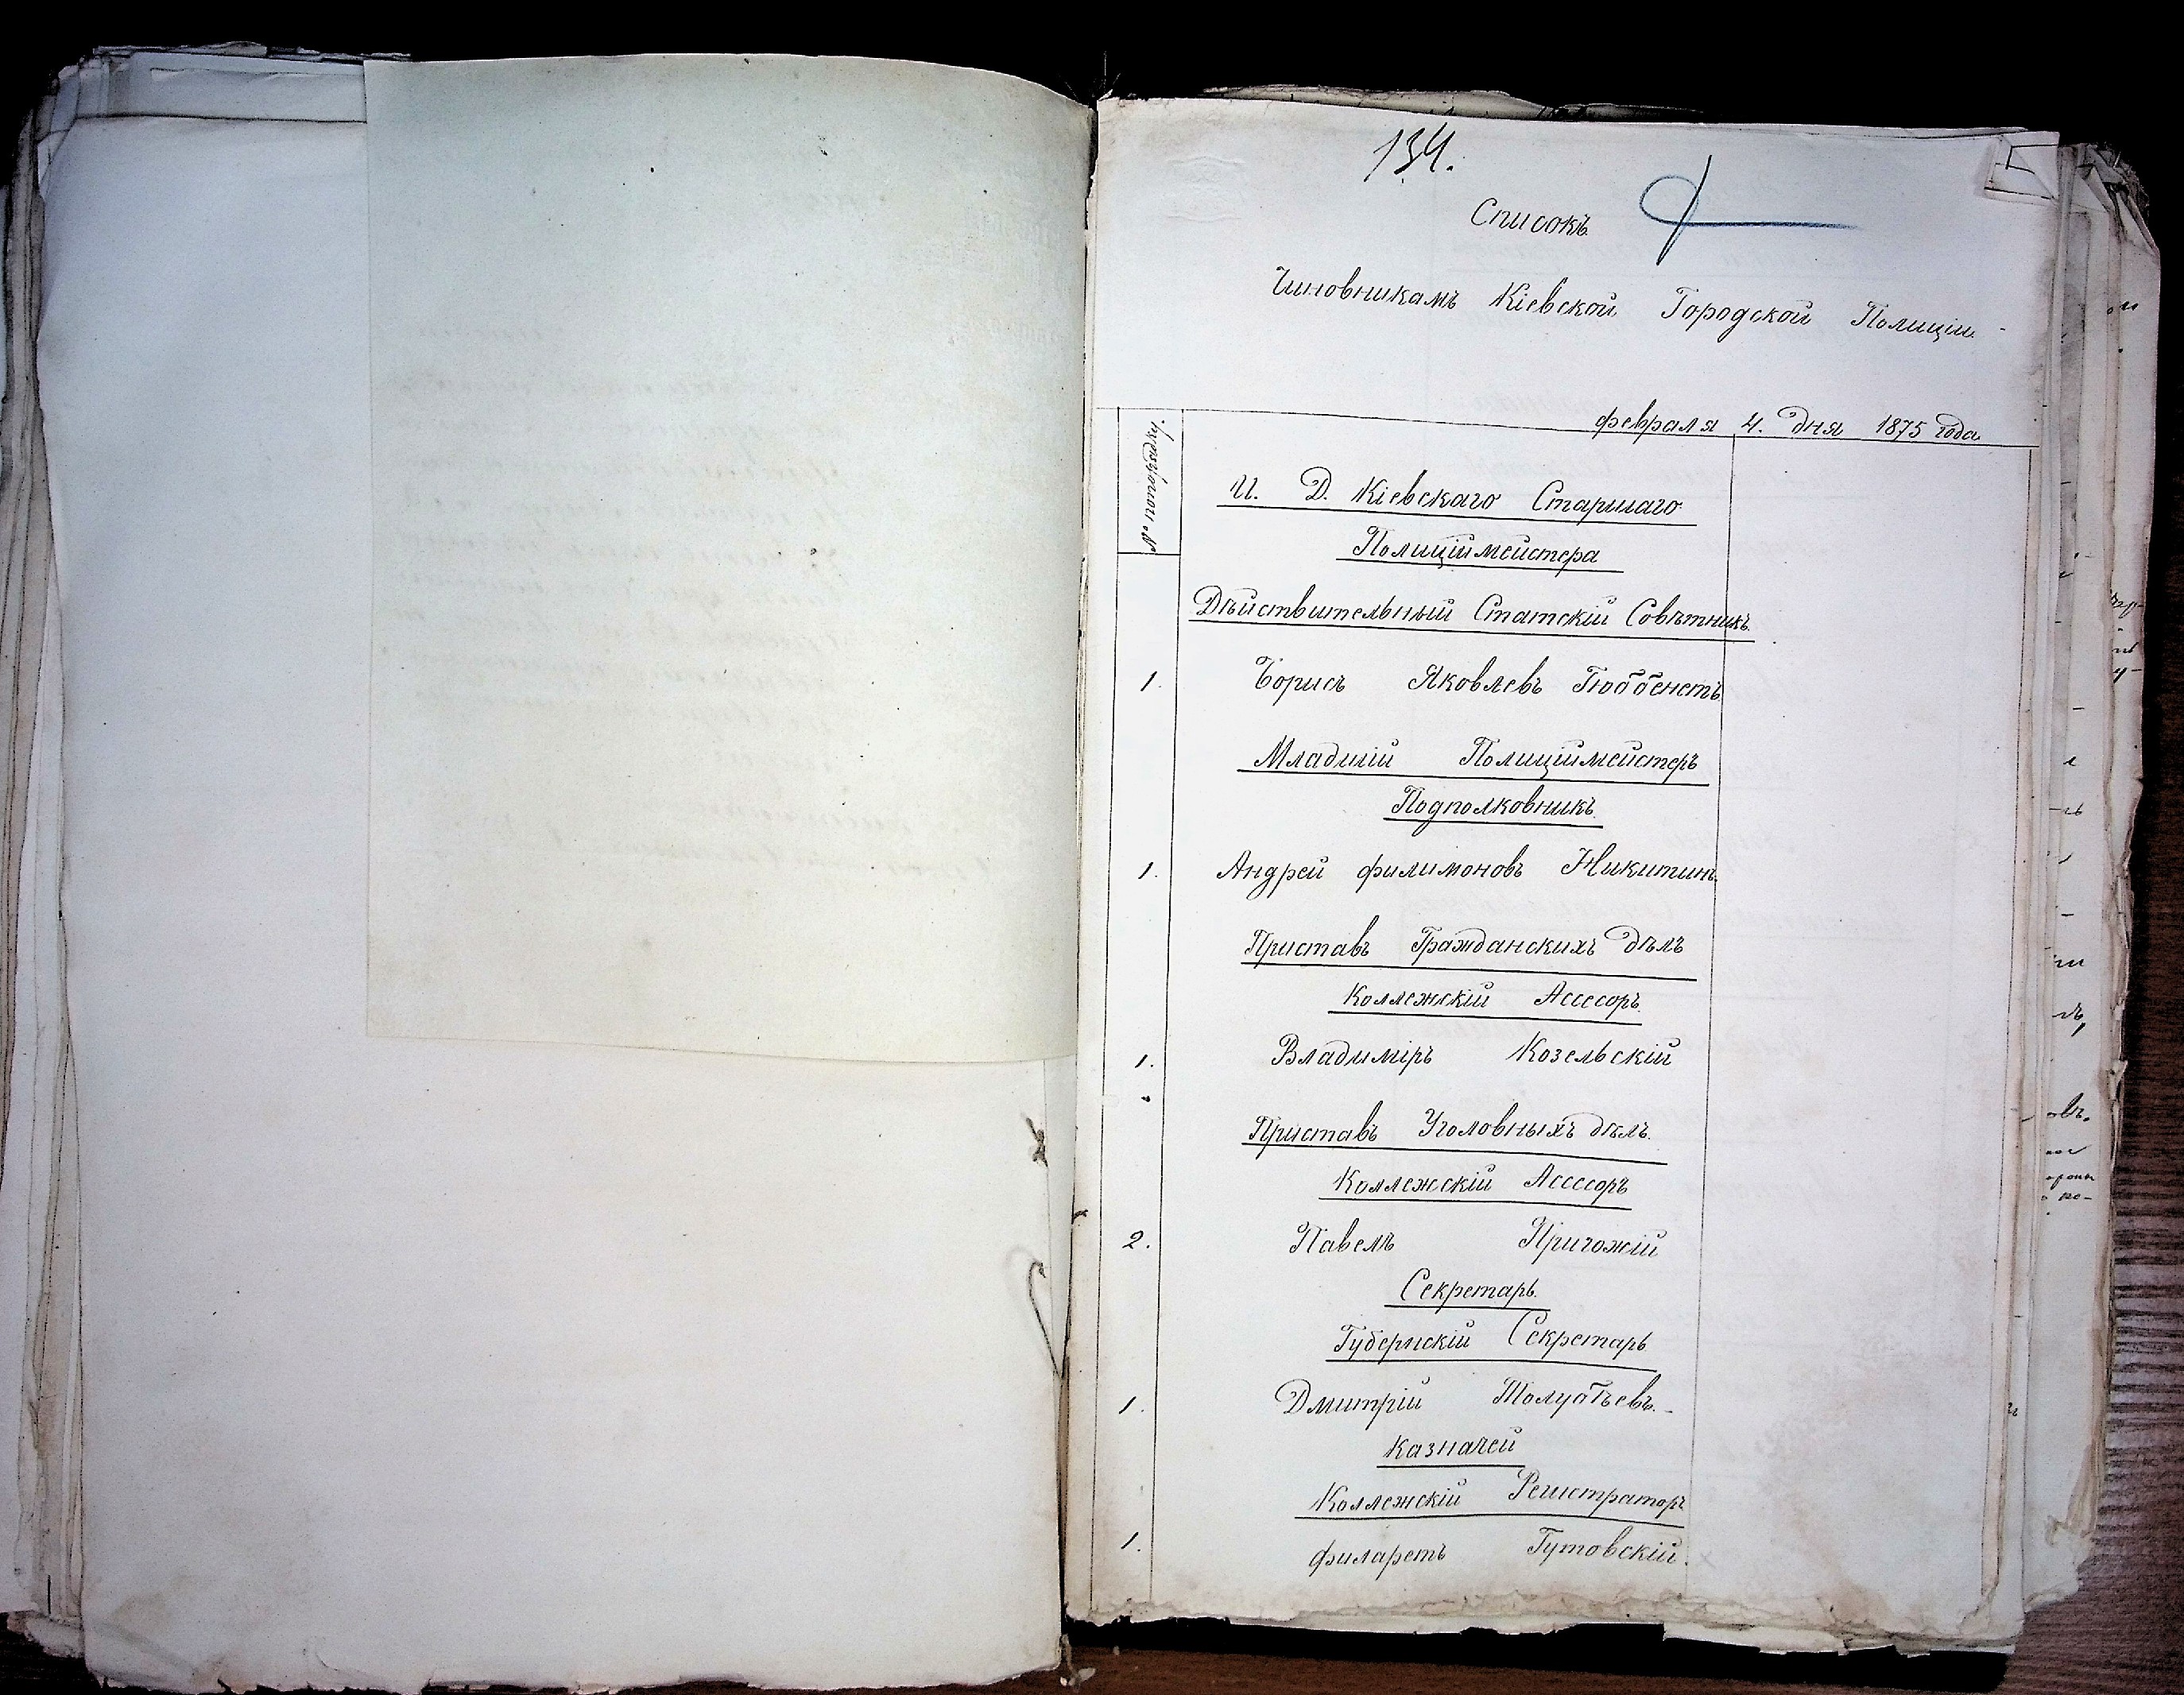 134.
Списокъ
Чиновникамъ Кіевской Городской Полиціи.
февраля 4. дня 1875 года
№
И. Д. Кіевскаго Старшаго
Полиціймейстера
Дѣйствительный Статскій Совѣтникъ.
1. Борисъ Яковлевъ Гюббенетъ
Младшій Полиціймейстеръ
Подполковникъ
1. Андрей филимоновъ Никитинъ.
Приставъ Гражданскихъ дѣлъ
Коллежскій Ассесоръ.
1. Владиміръ Козельскій
Приставъ Уголовныхъ дѣлъ.
Коллежскій Ассесоръ
2. Павелъ Пригожій
Секретарь.
Губернскій Секретарь
1. Дмитрій
Казначей
Коллежскій Регистраторъ
1. филаретъ Гутовскій.